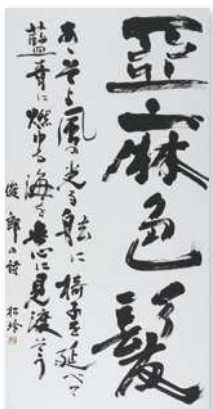 亞麻色髪
あゝそよ風の光る舷に 椅子を延べて
藍青に燃ゆる海を無心に見渡そう
郎の詩